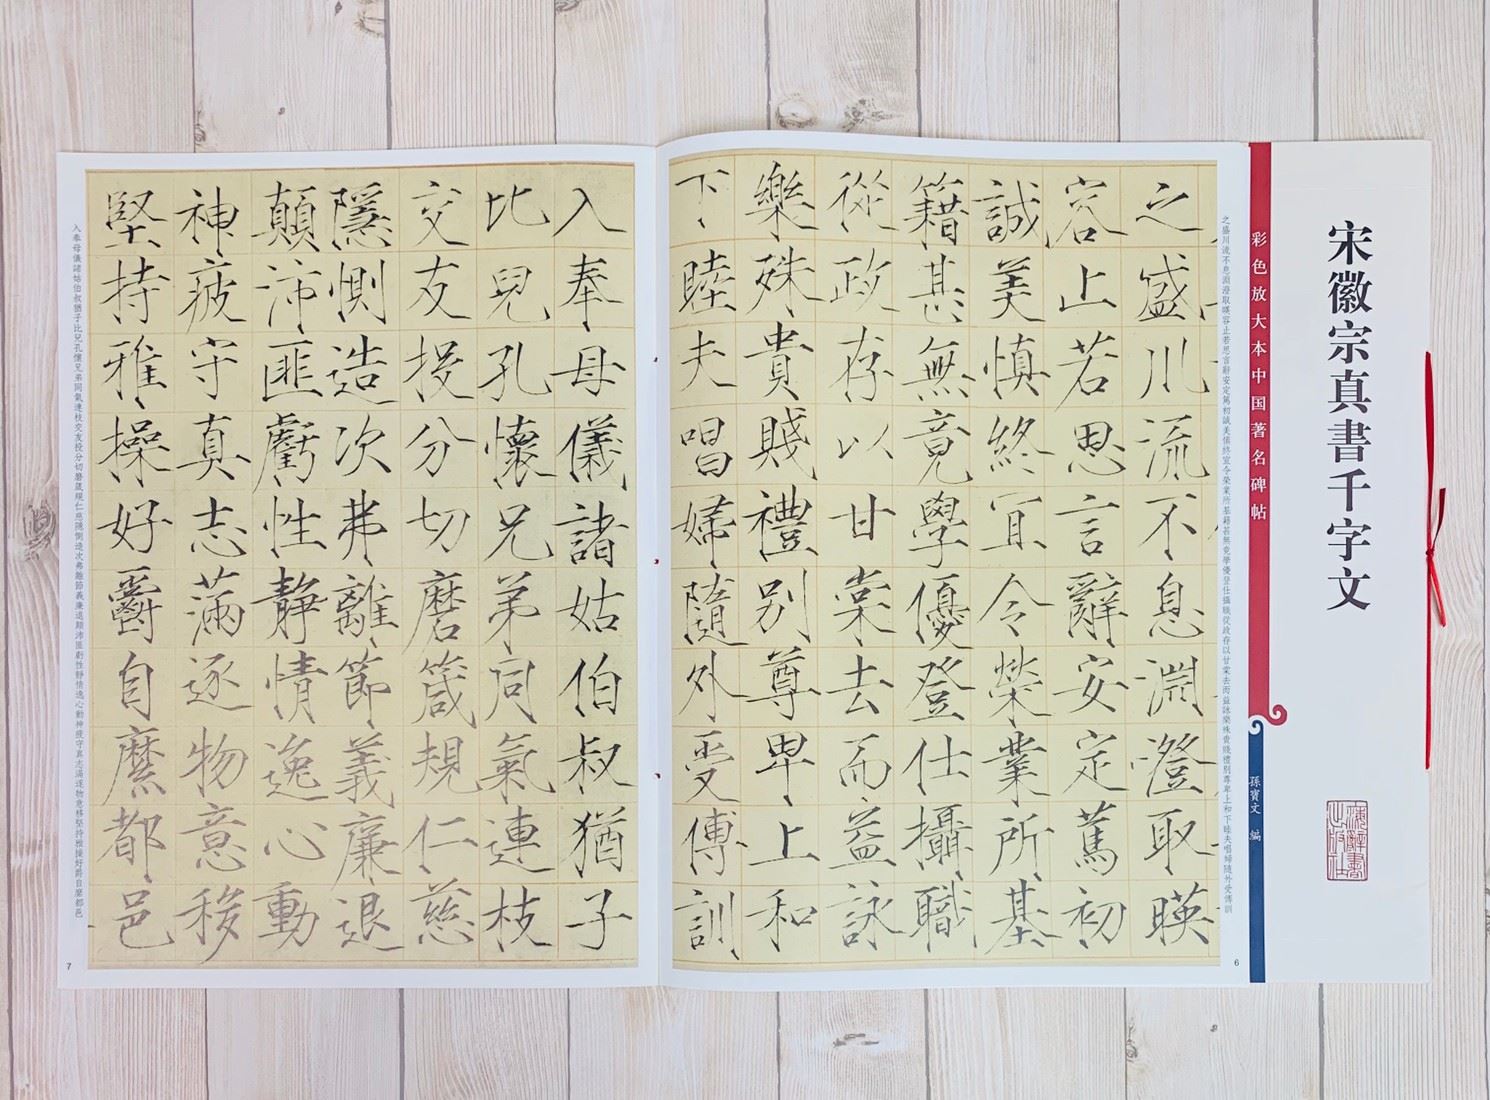 宋徽宗真書千字文
上海辭書出版社
彩色放大本中国著名碑帖
孫寶文 編
之盛川流不息淵澄取暎容止若思言辭安定篤初誠美慎終宜令榮業所基籍甚無竟學優登仕攝職從政存以甘棠去而益詠樂殊貴賤禮別尊卑上和下睦夫唱婦隨外受傅訓
6
之盛川流不息淵澄取暎
容止若思言辭安定篤初
誠美慎終宜令榮業所基
籍甚無竟學優登仕攝職
從政存以甘棠去而益詠
樂殊貴賤禮別尊卑上和
下睦夫唱婦隨外受傅訓
入奉母儀諸姑伯叔猶子
比兒孔懷兄弟同氣連枝
交友投分切磨箴規仁慈
隱惻造次弗離節義廉退
顛沛匪虧性靜情逸心動
神疲守真志滿逐物意移
堅持雅操好爵自縻都邑
入奉母儀諸姑伯叔猶子比兒孔懷兄弟同氣連枝交友投分切磨箴規仁慈隱惻造次弗離節義廉退顛沛匪虧性靜情逸心動神疲守真志滿逐物意移堅持雅操好爵自縻都邑
7